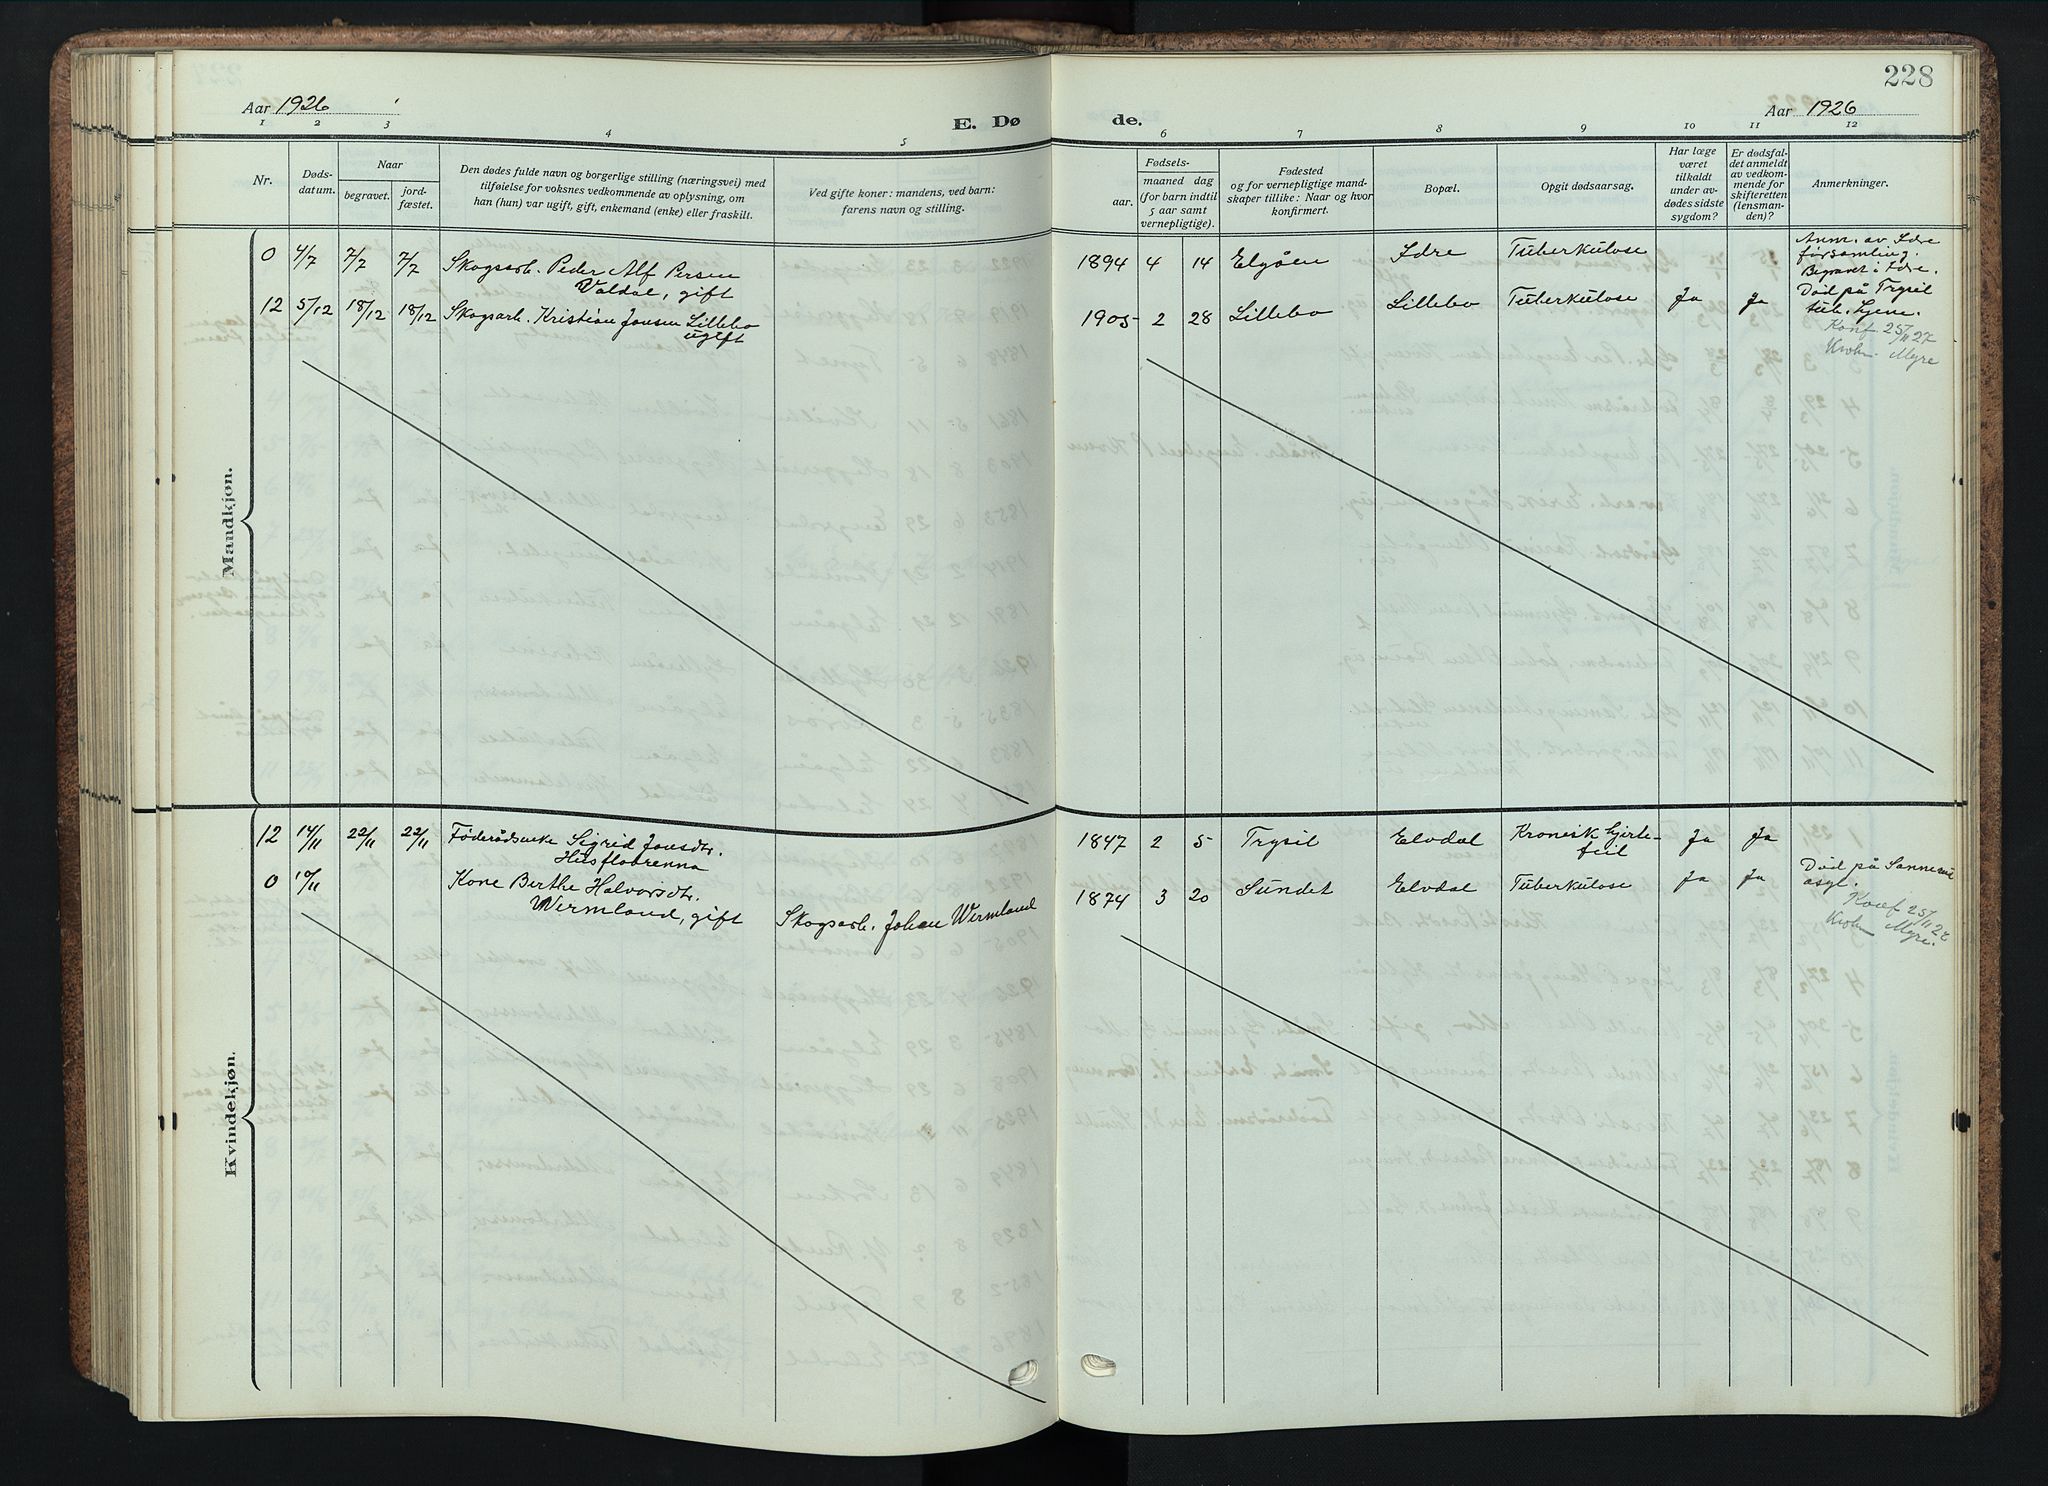 228
Aar 1926
Aar 1926
E. Dø de.
1 2 3 4 5 6 7 8 9 10 11 12
Nr.
Døds-
datum.
Naar
begravet.
jord-
fæstet.
Den dødes fulde navn og borgerlige stilling (næringsvei) med
tilføielse for voksnes vedkommende av oplysning, om
han (hun) var ugift, gift, enkemand (enke) eller fraskilt.
Ved gifte koner: mandens, ved barn:
farens navn og stilling.
Fødsels-
aar.
maaned dag
(for barn indtil
5 aar samt
vernepligtige).
Fødested
og for vernepligtige mand-
skaper tillike: Naar og hvor
konfirmert.
Bopæl.
Opgit dødsaarsag.
Har læge
været
tilkaldt
under av-
dødes sidste
sygdom?
Er dødsfal-
det anmeldt
av vedkom-
mende for
skifteretten
(lensman-
den)?
Anmerkninger.
Mandkjøn.
0 4/7 7/7 7/7 Skogsarb. Peder Alf Persen
Valdal, gift
1894 4 14 Elgåen Idre Tuberkulose
Anm. av Idre
forsamling.
Begravet i Idre.
12 5/12 18/12 18/12 Skogsarb. Kristian Jonsen Lillebo
ugift
1905 2 28 Lillebo Lillebo Tuberkulose Ja Ja
Død på Trysil
tub. hjem.
Konf. 25/11 27
Krohn Myre
Kvindekjøn.
12 14/11 22/11 22/11 Føderådsenke Sigrid Jonsdtr.
Husfloenna
1847 2 5 Trysil Elvdal Kronisk hjerte-
feil
Ja Ja
0 10/11 Kone Berthe Halvorsdtr.
Wermland, gift
Skogsarb. Johan Wermland
1874 3 20 Sundet Elvdal Tuberkulose Ja Ja
Død på Sannerud
asyl.
Konf 25/11 27
Krohn Myre.